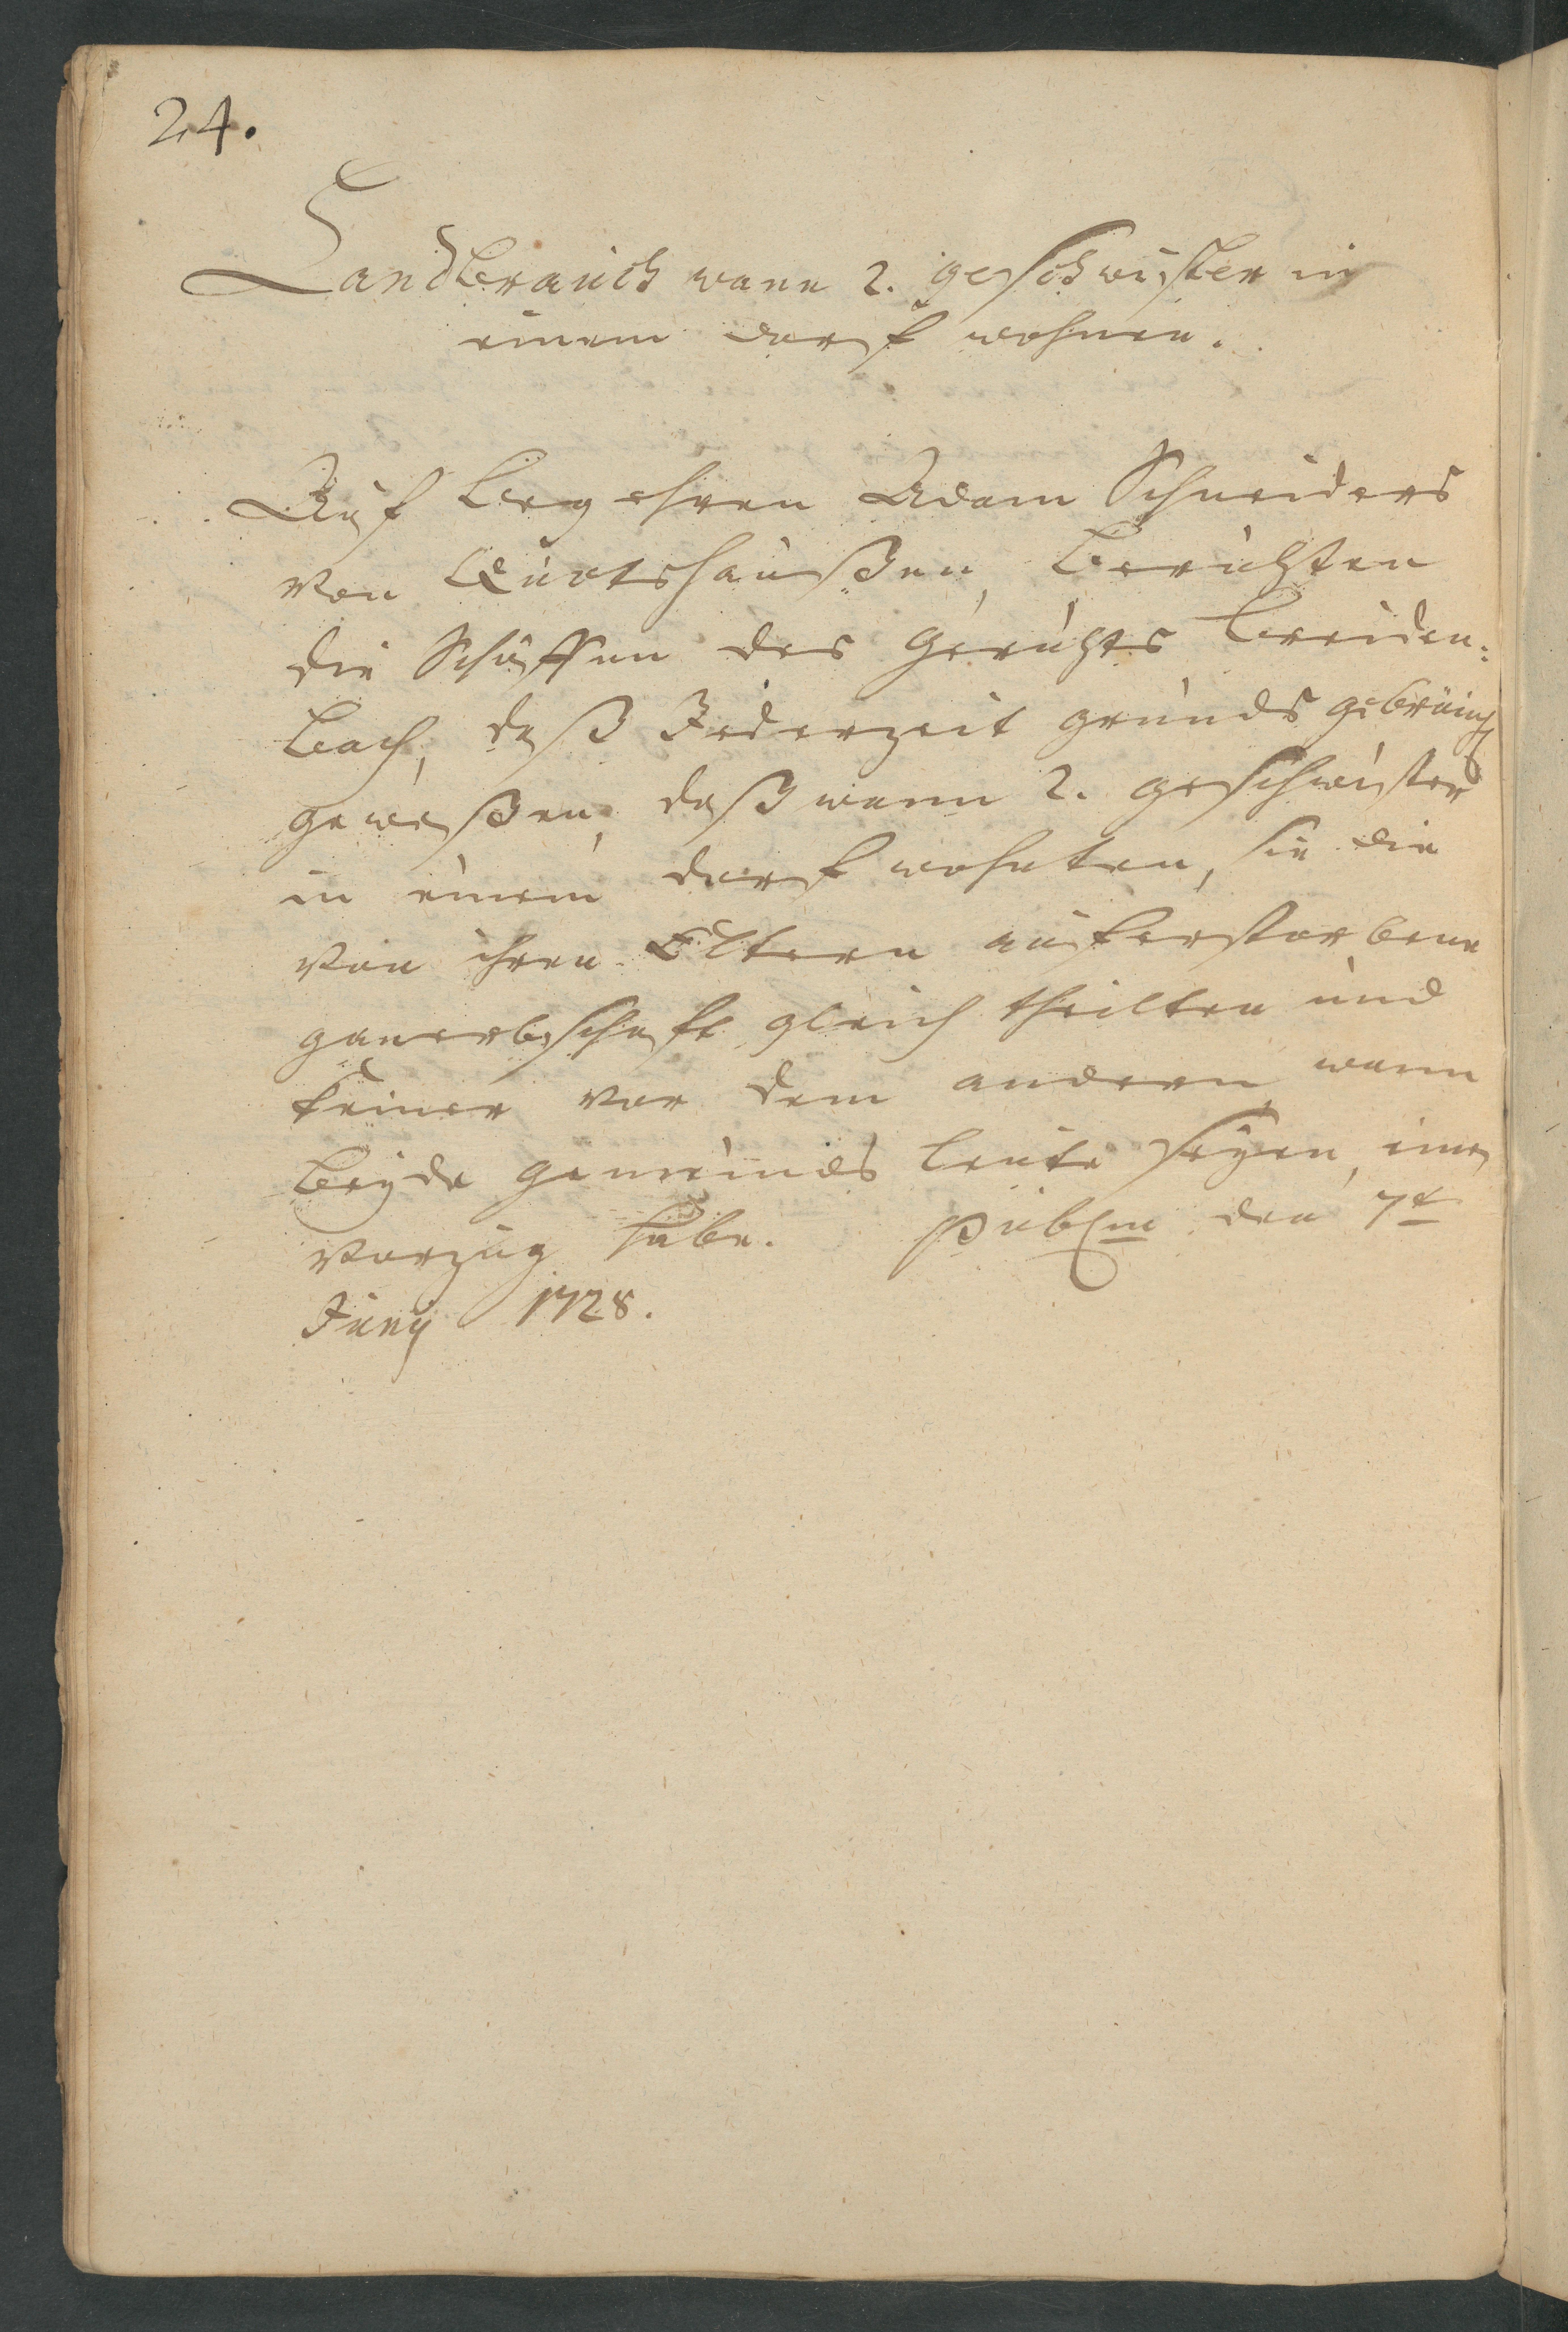 24.
Landbrauch wann 2. geschwister in
einem dorf wohnen.
Auf begehren Adam Schneiders
von Quotshaußen, berichten
die Schöffen des Gerichts breiden:
bach, daß Jederzeit grunds gebräuch
geweßen, daß wann 2. geschwister
in einem dorf wohnten, sie die
von ihren Eltern auferstorbene
ganerbschaft gleich theilten und
keiner vor dem andern, wann
beyde gemeinds leute seyen, einen
Vorzug habe. Publm den 7t
Juny 1728.